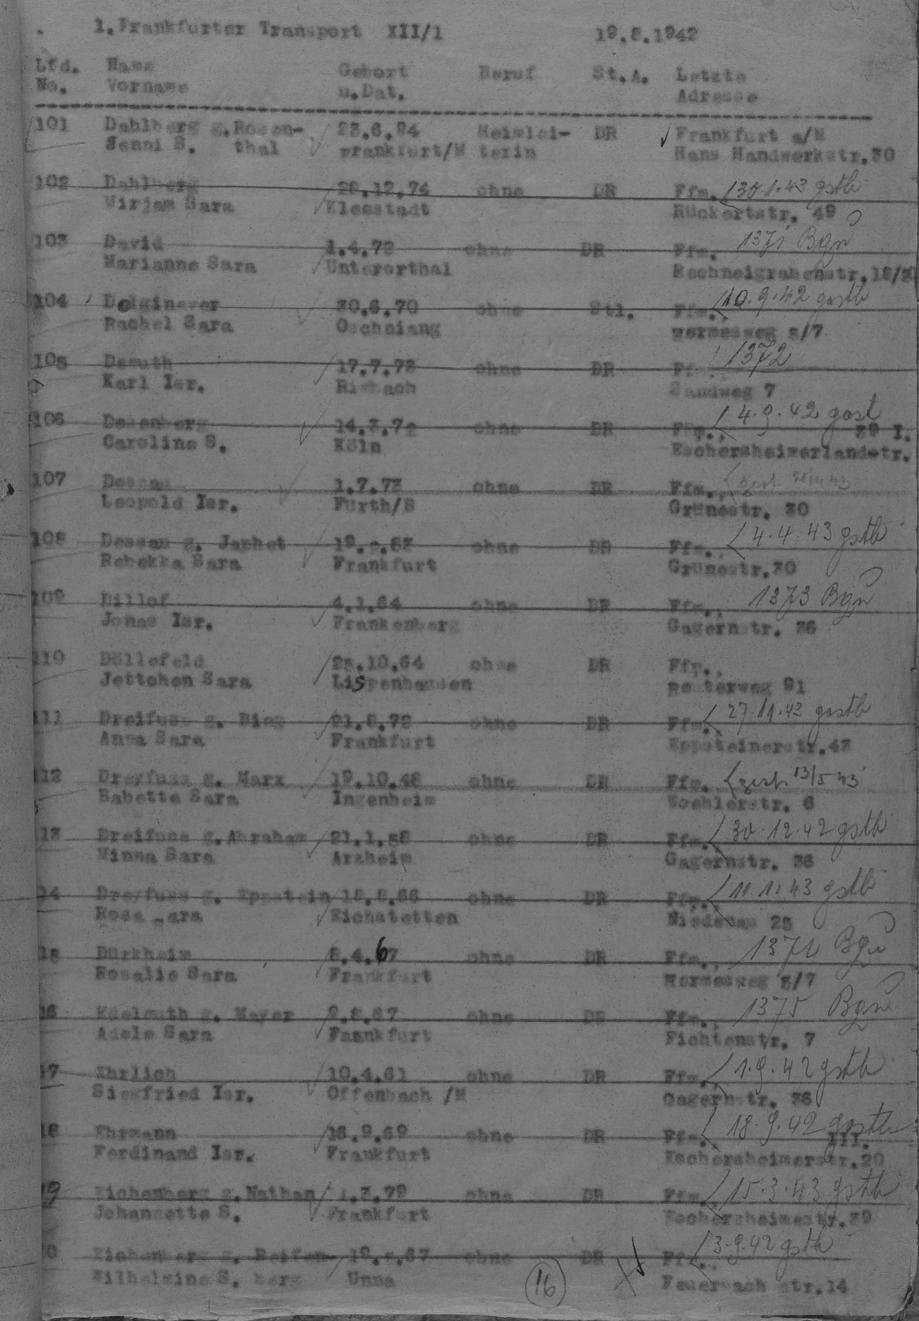 1.Frankfurter Transport XII/1 19.8.1942
Lfd. Name Geburt Beruf St.A. Letzte
No. Vorname u.Dat. Adresse
101 Dahlberg g.Rosen- 23.6.94 Heimlei- DR Frankfurt a/M
Jenni S. thal Frankfurt/M terin Hans Handwerkstr.30
102 Dahlberg 28.12.74 ohne DR Ffm. 30.1.43 gstb
Mirjam Sara Kleestadt Rückertstr. 49
103 David 1.4.72 ohne DR Ffm. 1371 Bgn
Marianne Sara Unterorthal Rechneigrabenstr.
104 30.6.70 ohne Stl. Ffm. 10.9.42 gestb
Rachel Sara Oschaiang wormesweg 5/7
105 Demuth 17.7.72 ohne DR 1372
Karl Isr. Sandweg 7
106 ohne DR Ffm., 4.9.42 gest 39 I.
Caroline S. Köln Eschersheimerlandstr.
107 Dessau 1.7.72 ohne DR Ffm.,
Leopold Isr. Fürth/B Grünestr. 30
108 Dessau g. Japhet ohne DR Ffm., 4.4.43 gstb
Rebekka Sara Frankfurt Grünestr.30
109 Dillof 4.1.64 ohne DR Ffm., 1373 Bgn
Jonas Isr. Frankenberg Gagernstr. 36
110 Döllefeld 25.10.64 ohne DR Ffm.,
Jettchen Sara Lispenhausen Reuterweg 91
111 Dreifuss g. Bing 21.8.72 ohne DR Ffm. 27.11.42 gestb
Anna Sara Frankfurt Eppsteinerstr.47
112 Dreyfuss g. Marx 19.10.48 ohne DR Ffm. gest. 13/5 43
Babette Sara Ingenheim Woehlerstr. 6
13 Dreifuss g.Abraham 21.1.58 ohne DR Ffm. 30.12.42 gstb
Minna Sara Arzheim Gagernstr. 36
14 Dreyfuss g. Eppstein ohne DR Ffm. 43 gstb
Rosa Sara Eichstetten Niedenau 25
15 Dürkheim 8.4.67 ohne DR Ffm., Bgn
Rosalie Sara Frankfurt Wormesweg 5/7
16 Edelmuth g. Mayer 9.8.67 ohne DR Ffm., 1375 Bgn
Adele Sara Frankfurt Fichtenstr. 7
17 Ehrlich 10.4.61 ohne DR Ffm. 1.9.42 gstb
Siegfried Isr. Offenbach /M Gagernstr. 36
18 Ehrmann 16.9.69 ohne DR Ffm. 18.9.42 gestb III.
Ferdinand Isr. Frankfurt Eschersheimerstr.20
19 Eichenberg g.Nathan ohne DR Ffm. 15.3.43 gstb
Johannette S. Frankfurt Eschersheimestr.39
0 Eichenberg g. Reifen- ohne DR Ffm., 3.9.42 gstb
Wilhelmine S. berg Unna 16 Feuerbach str.14